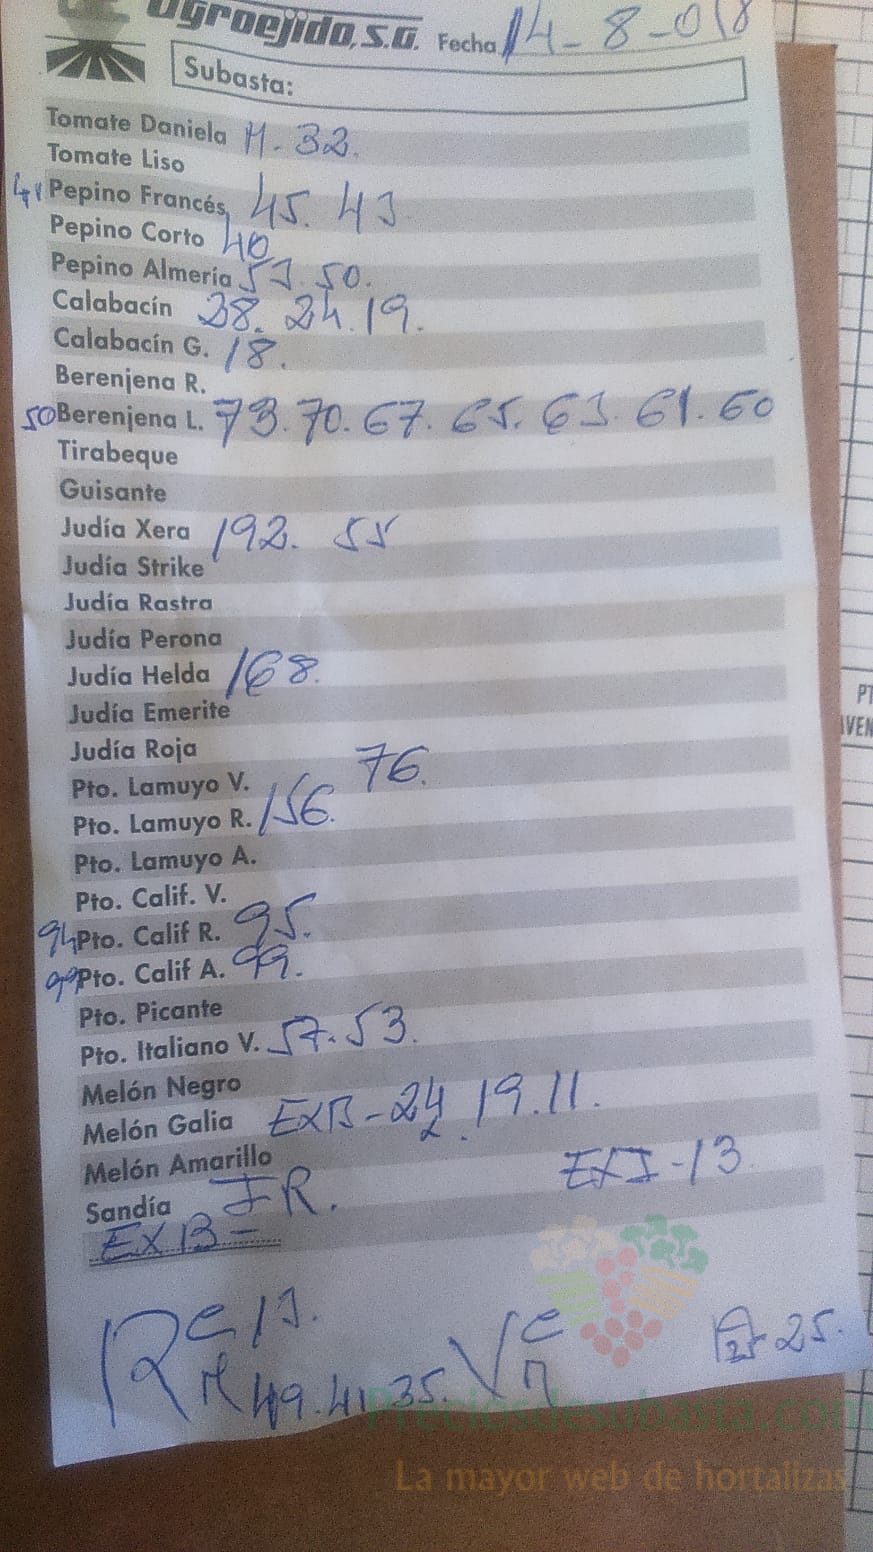 Agroejido, S.A. Fecha 14-8-018
Subasta:
Tomate Daniela M-32.
Tomate Liso
41 Pepino Francés 45. 43
Pepino Corto 40
Pepino Almería 53.50.
Calabacín 28. 24.19.
Calabacín G. 18.
Berenjena R.
50 Berenjena L. 73.70.67.65.63.61.60
Tirabeque
Guisante
Judía Xera 192. 55
Judía Strike
Judía Rastra
Judía Perona
Judía Helda 168.
Judía Emerite
Judía Roja
Pto. Lamuyo V. 76.
Pto. Lamuyo R. 156.
Pto. Lamuyo A.
Pto. Calif. V.
94 Pto. Calif R. 95.
99 Pto. Calif A. 99.
Pto. Picante
Pto. Italiano V. 57.53.
Melón Negro
Melón Galia EXB-24.19.11.
Melón Amarillo EXI-13
Sandía JR.
EXB=
R G 13. V G
M 49.41.35. 25.
Preciosdesubasta.com
La mayor web de hortalizas
PT
VEN